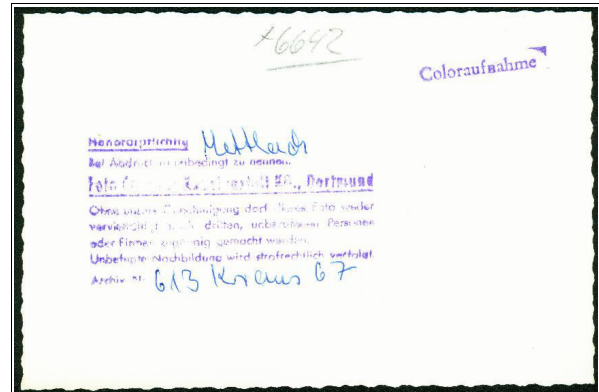 +6642
Coloraufnahme
Honorarpflichtig Mettlach
Bei Abdruck unbedingt zu nennen.
Foto KG., Dortmund
Ohne unsere Genehmigung darf dieses Foto weder
vervielfältigt noch dritten, unberufenen Personen
oder Firmen gemacht werden.
Unbefugte Nachbildung wird strafrechtlich verfolgt.
Archiv Nr. 613 Kraus 67